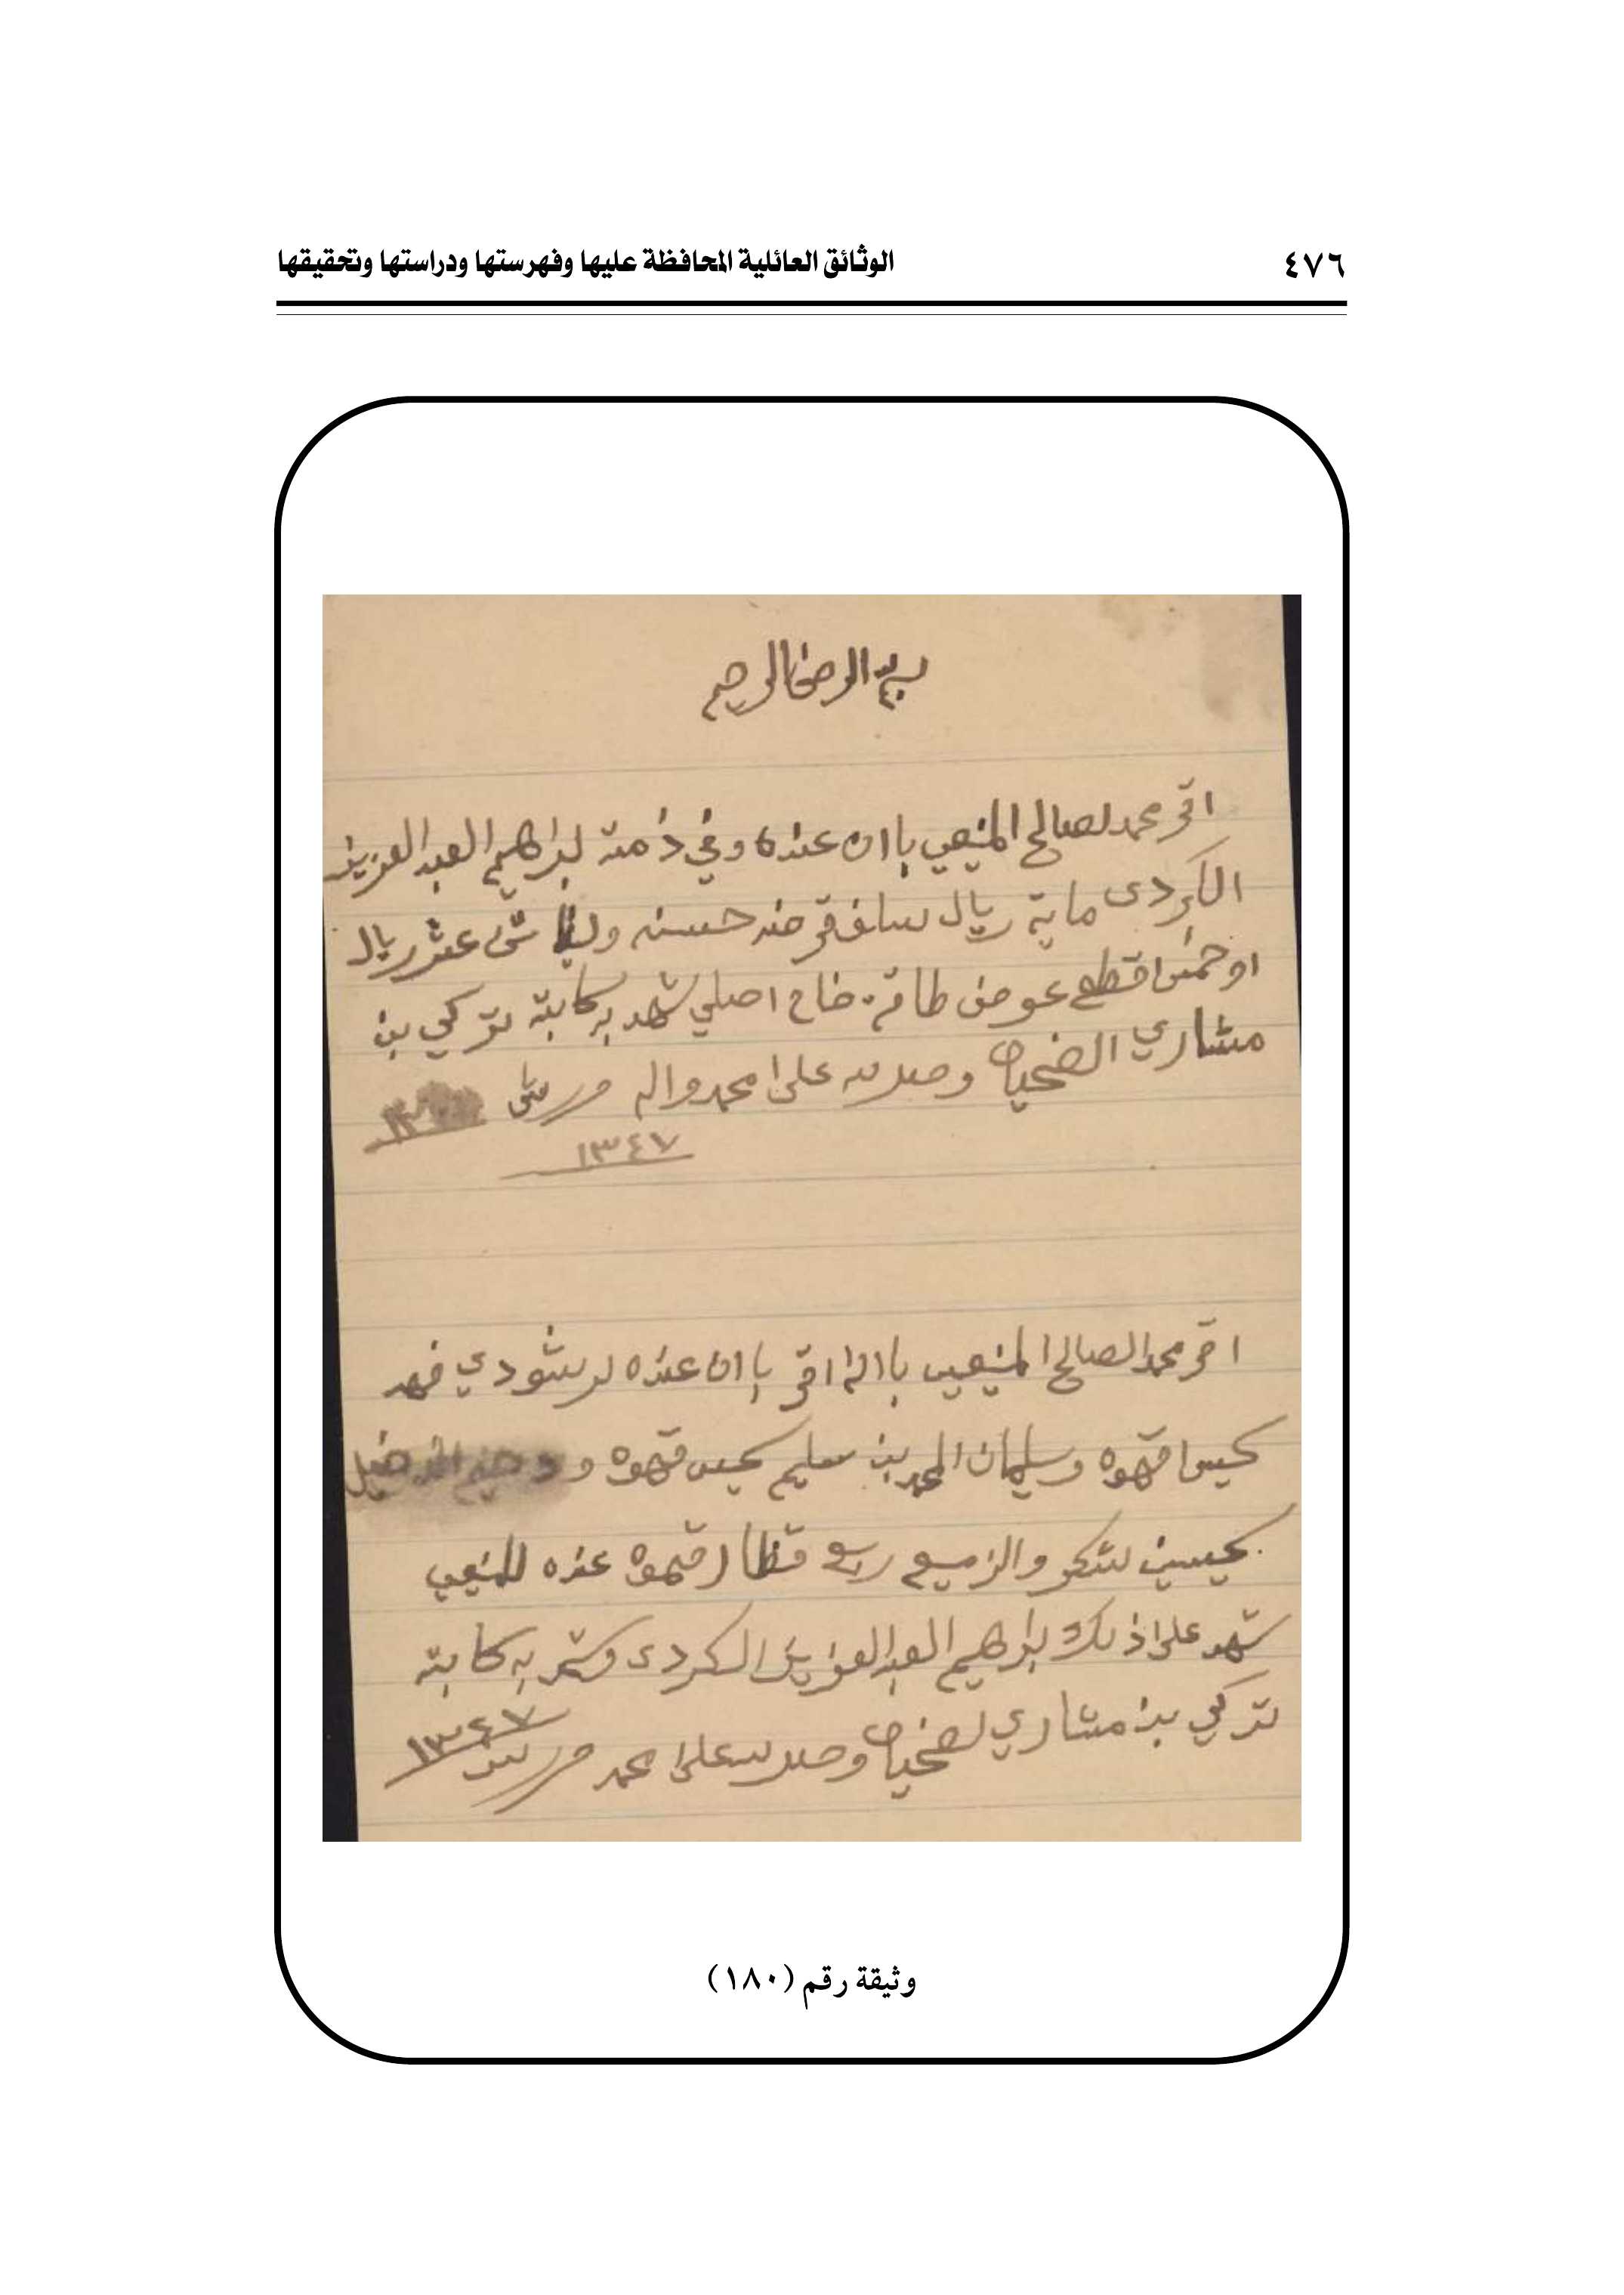 ٤٧٦
الوثائق العائلية المحافظة عليها وفهرستها ودراستها وتحقيقها
بسم الله الرحمن الرحيم
اقر محمد لصالح المنيعي باان عنده وفي ذمته لبراهيم العبد العزيز
الكردي ماية ريال سلف قرضه حسنه عشر ريال
او خمس اقطع عوض طاقة خام اصلي شهد به كابته تركي بن
مشاري الضحيان وصلى الله على محمد واله
١٣٤٧
اقر محمد الصالح المنيعي اقر باان عنده لرشودي فهد
كيس قهوه وسليمان المحمد بن سليم كيس قهوه و
كيسين شكر والزميع ربع قهوه عنده للمنيعي
شهد على اذلك براهيم العبد العزيز الكردي وشهد به كابته
تركي بن مشاري لضحيان وصلى الله على محمد ١٣٤٧
وثيقة رقم (١٨٠)